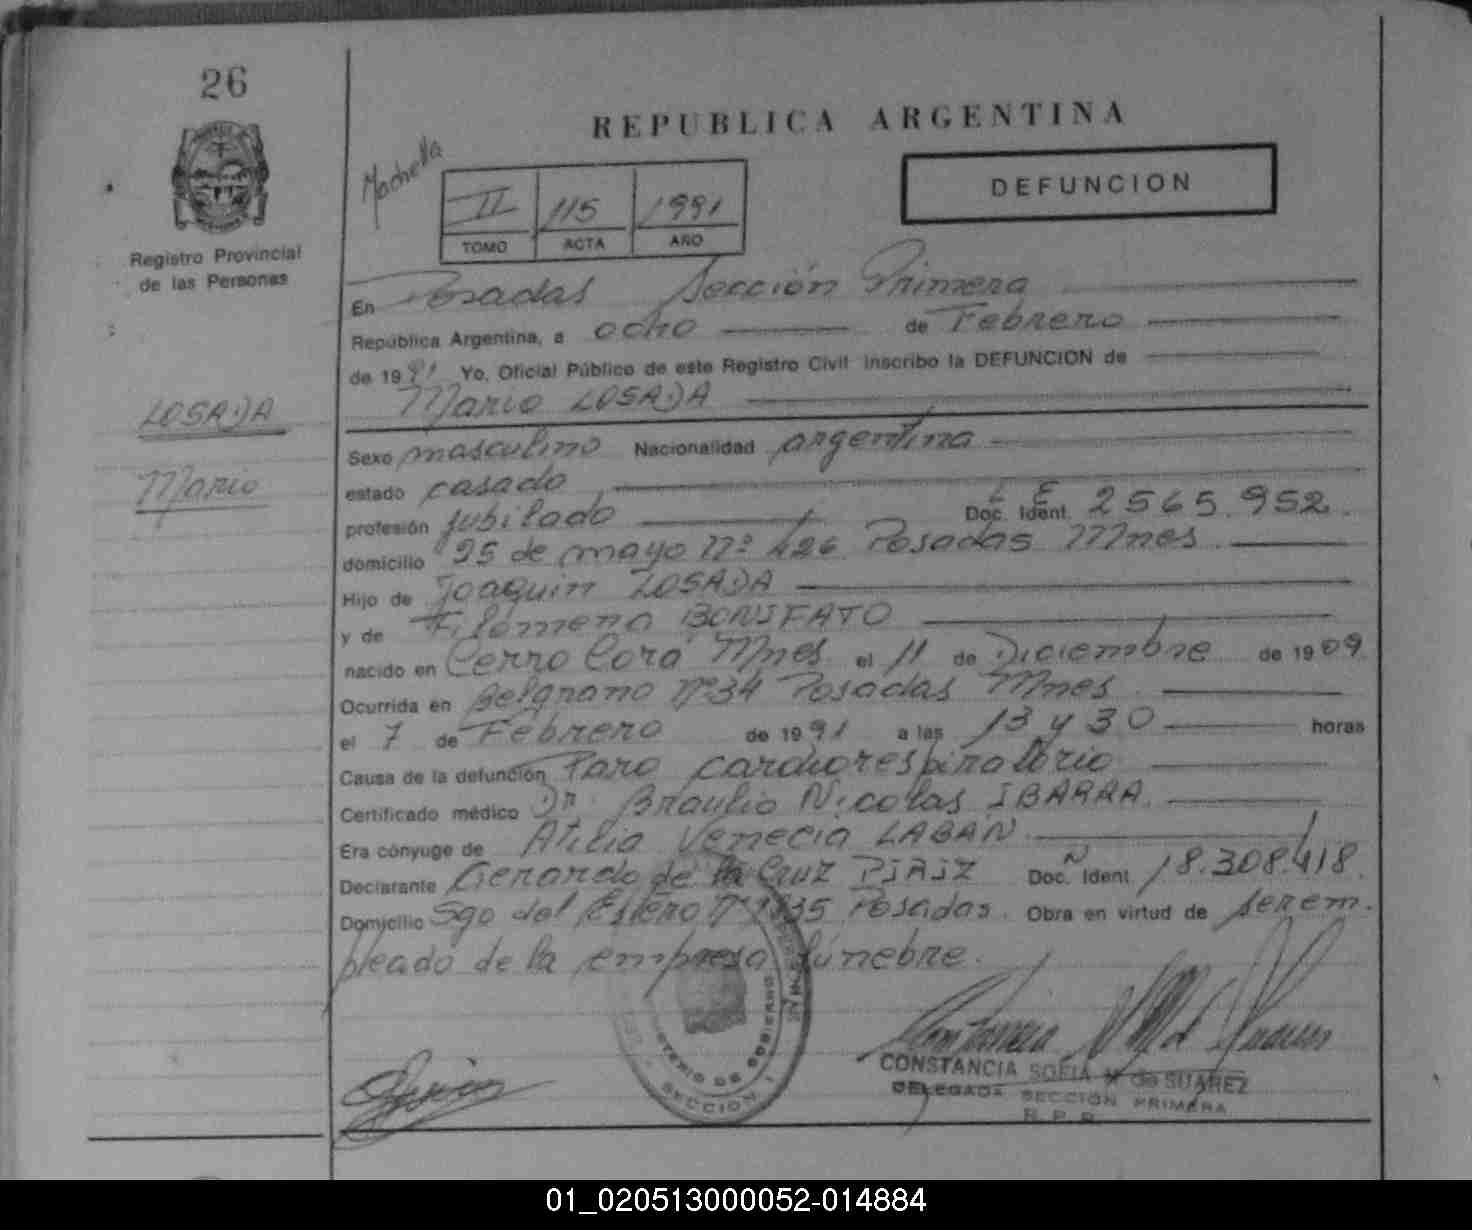 26
Registro Provincial
de las Personas
LOSADA
Mario
REPUBLICA ARGENTINA
Machella
II 115 1991
TOMO ACTA AÑO
DEFUNCION
En Posadas Sección Primera
República Argentina, a ocho de Febrero
de 1991 Yo, Oficial Público de este Registro Civil inscribo la DEFUNCION de
Mario LOSADA
Sexo masculino Nacionalidad argentina
estado casado
profesión jubilado Doc. Ident. L E 2565.952.
domicilio 25 de mayo Nº 426 Posadas Mnes
Hijo de Joaquin LOSADA
y de Filomena BONIFATO
nacido en Cerro Corá Mnes el 11 de Diciembre de 1909
Ocurrida en Belgrano Nº 34 Posadas Mnes
el 7 de Febrero de 1991 a las 13 y 30 horas
Causa de la defunción Paro cardiorespiratorio
Certificado médico Dr. Braulio Nicolas IBARRA.
Era cónyuge de Atilia Venecia LABAN
Declarante Gerardo de la Cruz Doc. Ident. Ñ 18.308.418.
Domicilio Sgo del Estero Nº 1835 Posadas. Obra en virtud de ser em.
pleado de la empresa fúnebre.
MINISTERIO DE GOBIERNO
SECCION 1
CONSTANCIA SOFIA M de SUAREZ
DELEGADA SECCION PRIMERA
R. P. P.
01_020513000052-014884